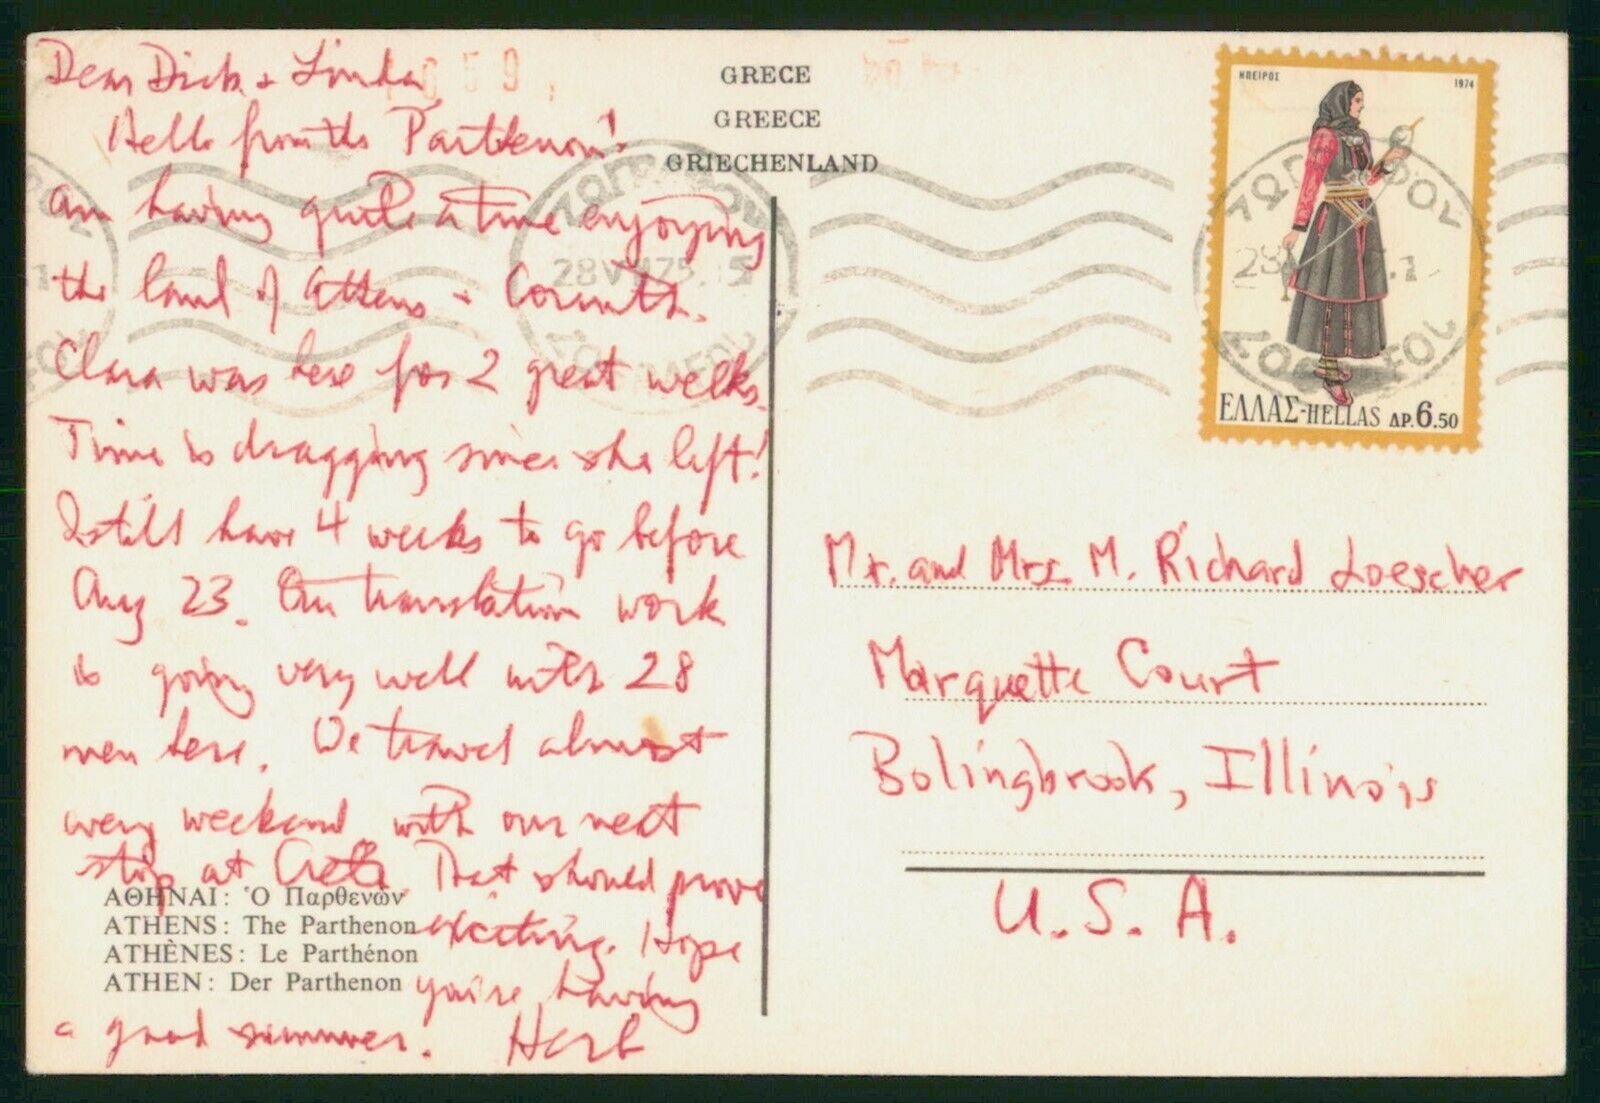 Dear Dick & Linda,
Hello from the Parthenon!
Am having quite a time enjoying
the land of Athens & Corinth.
Clara was here for 2 great weeks.
Time is dragging since she left!
I still have 4 weeks to go before
Aug 23. Our translation work
is going very well with 28
men here. We travel almost
every weekend, with our next
stop at Crete. That should prove
exciting. Hope
you're having
a good summer. Herb
ΑΘΗΝΑΙ: Ὁ Παρθενὼν
ATHENS: The Parthenon
ATHÈNES: Le Parthénon
ATHEN: Der Parthenon
GRECE
GREECE
GRIECHENLAND
ΗΠΕΙΡΟΣ 1974
ΕΛΛΑΣ-HELLAS ΔΡ. 6.50
Mr. and Mrs. M. Richard Loescher
Marquette Court
Bolingbrook, Illinois
U.S.A.